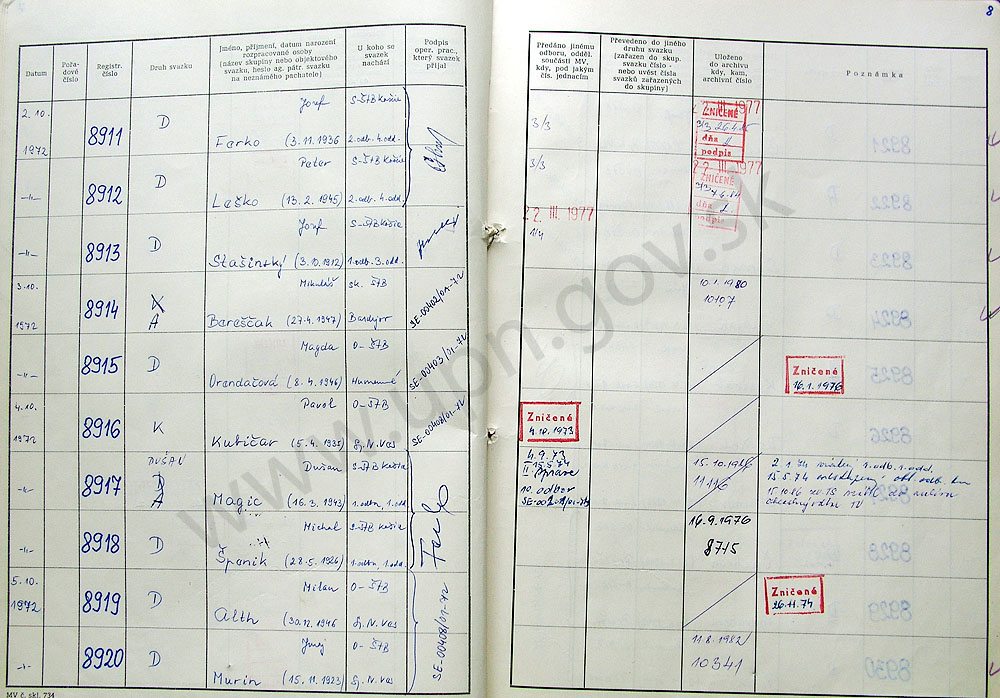 8
Datum
Pořa-
dové
číslo
Registr.
číslo
Druh svazku
Jméno, příjmení, datum narození
rozpracované osoby
(název skupiny nebo objektového
svazku, heslo ag. pátr. svazku
na neznámého pachatele)
U koho se
svazek
nachází
Podpis
oper. prac.,
který svazek
přijal
Předáno jinému
odboru, odděl.
součásti MV,
kdy, pod jakým
čís. jednacím
Převedeno do jiného
druhu svazku
(zařazen do skup.
svazku číslo -
nebo uvést čísla
svazků zařazených
do skupiny)
Uloženo
do archivu
kdy, kam,
archivní číslo
Poznámka
2.10.
1972
8911
D
Jozef
Farko (3.11.1936
S-ŠtB Košice
2.odb. 4.odd.
3/3
2 III. 1977
ZNIČENÉ
dňa
podpis
-"-
8912
D
Peter
Leško (13.2.1945)
S-ŠtB Košice
2.odb. 4.odd.
3/3
22 III. 1977
ZNIČENÉ
dňa
podpis
-"-
8913
D
Jozef
Stašinský (3.10.1912)
S-ŠtB Košice
1.odb. 3.odd.
22 III. 1977
1/4
3.10.
1972
8914
K
A
Mikuláš
Bereščak (27.4.1947)
sk. ŠTB
Bardejov
SE-00402/01-72
10.1.1980
10107
-"-
8915
D
Magda
Orendačová (8.4.1946)
O-ŠTB
Humenné
SE-00403/01-72
Zničené
16.1.1976
4.10.
1972
8916
K
Pavol
Kubičar (5.4.1935)
O-ŠTB
Sp.N.Ves
SE-00408/01-72
Zničené
4.10.1973
-"-
8917
DUŠAN
D
A
Dušan
Magic (16.3.1943)
S-ŠTB Košice
1.odbn. 1.odd.
4.9.73
15.5.74
II správe
10. odbor
15.10.1986
11116
2.1.74 1.odb. 1.odd.
15.5.74
15.10.86
-"-
8918
D
Michal
Španik (28.5.1926)
S-ŠTB Košice
1.odbn. 1.odd.
16.9.1976
8715
5.10.
1972
8919
D
Milan
Alth (30.12.1946
O-ŠTB
Sp.N.Ves
SE-00408/01-72
Zničené
26.11.74
-"-
8920
D
Juraj
Murin (15.11.1923)
O-ŠTB
Sp.N.Ves
11.8.1982
10341
MV č. skl. 734
www.upn.gov.sk